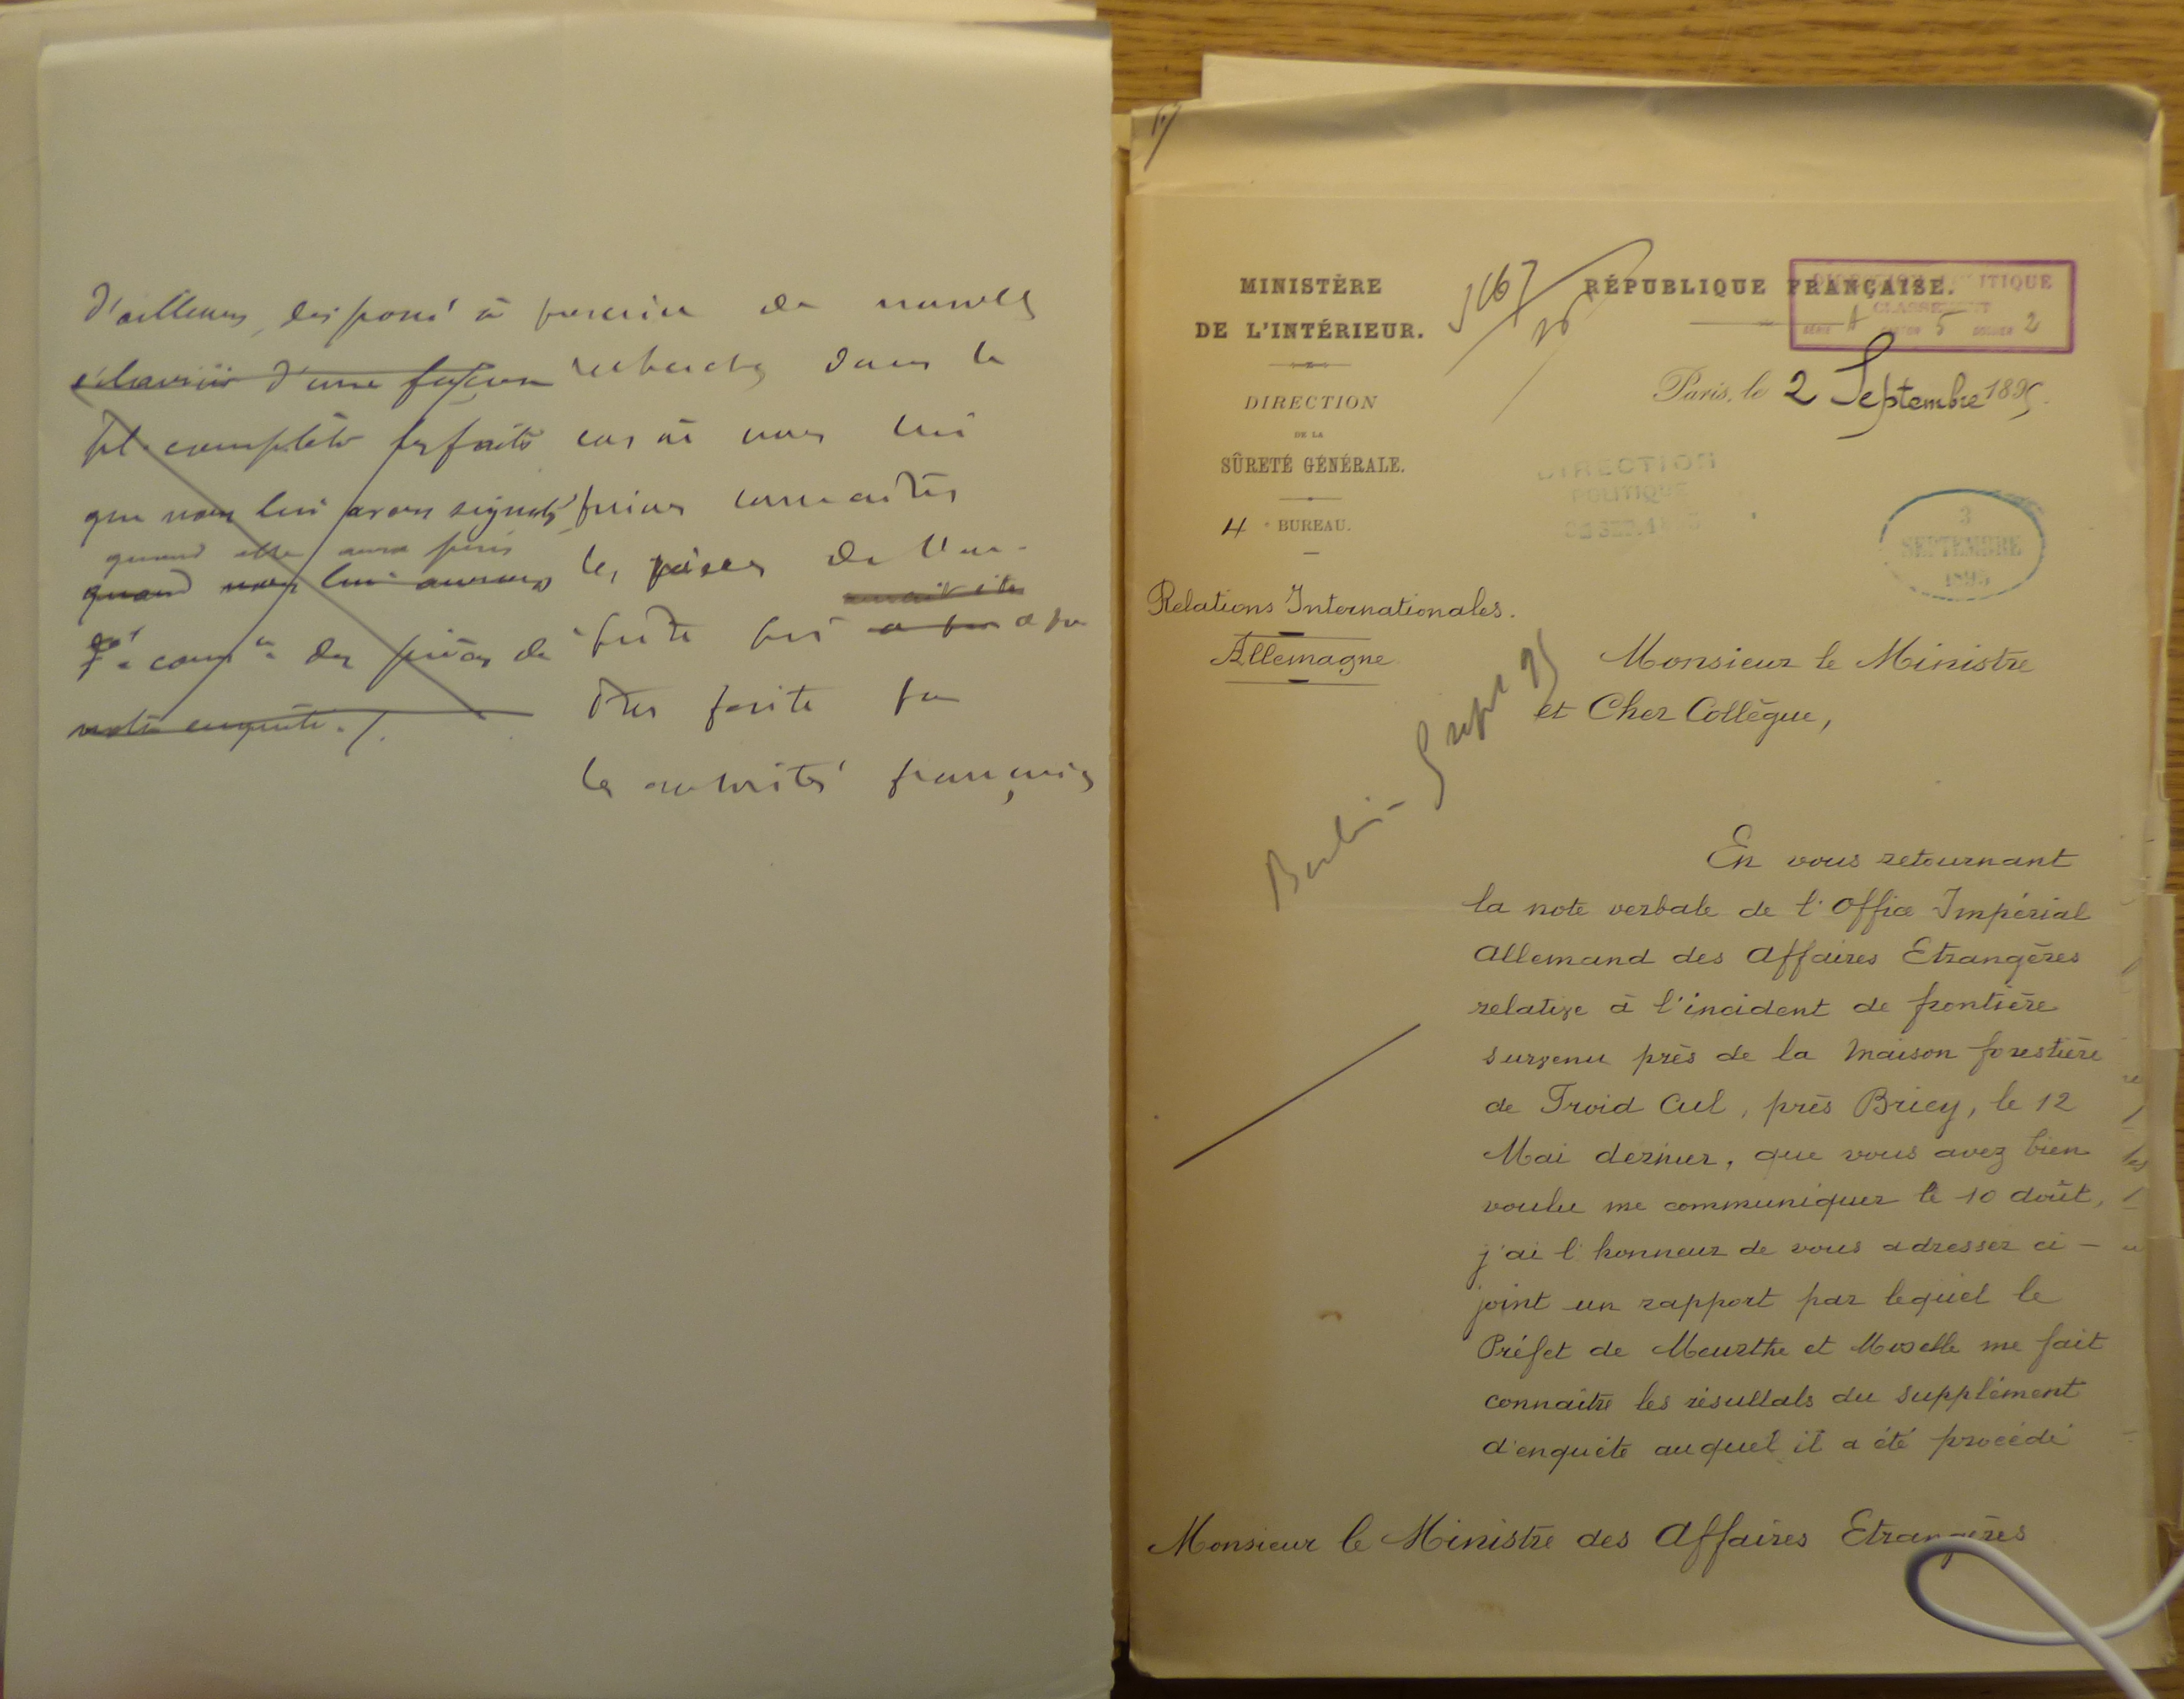 d'ailleurs, disposé à prescrire de nouvelles
éclaircir d'une façon recherches dans le
et complète les faits cas où nous lui
que nous lui avons signalés ferions connaître
quand elle aura
quand nous lui aurons les pièces de l'en-
des pièces de
quête qui a pu
notre enquête ./.
être faite par
les autorités françaises
MINISTÈRE
DE L'INTÉRIEUR.
DIRECTION
DE LA
SÛRETÉ GÉNÉRALE.
4e BUREAU.
Relations Internationales.
Allemagne
RÉPUBLIQUE FRANÇAISE.
DIRECTION POLITIQUE
CLASSEMENT
SÉRIE A CARTON 5 DOSSIER 2
Paris, le 2 Septembre 1895.
DIRECTION
POLITIQUE
3
SEPTEMBRE
1895
Berlin - 5 sept 95
Monsieur le Ministre
et Cher Collègue,
En vous retournant
la note verbale de l'Office Impérial
Allemand des Affaires Etrangères
relative à l'incident de frontière
survenu près de la Maison forestière
de Froid Cul, près Briey, le 12
Mai dernier, que vous avez bien
voulu me communiquer le 10 Août,
j'ai l'honneur de vous adresser ci-
joint un rapport par lequel le
Préfet de Meurthe et Moselle me fait
connaître les résultats du supplément
d'enquête auquel il a été procédé
Monsieur le Ministre des Affaires Etrangères